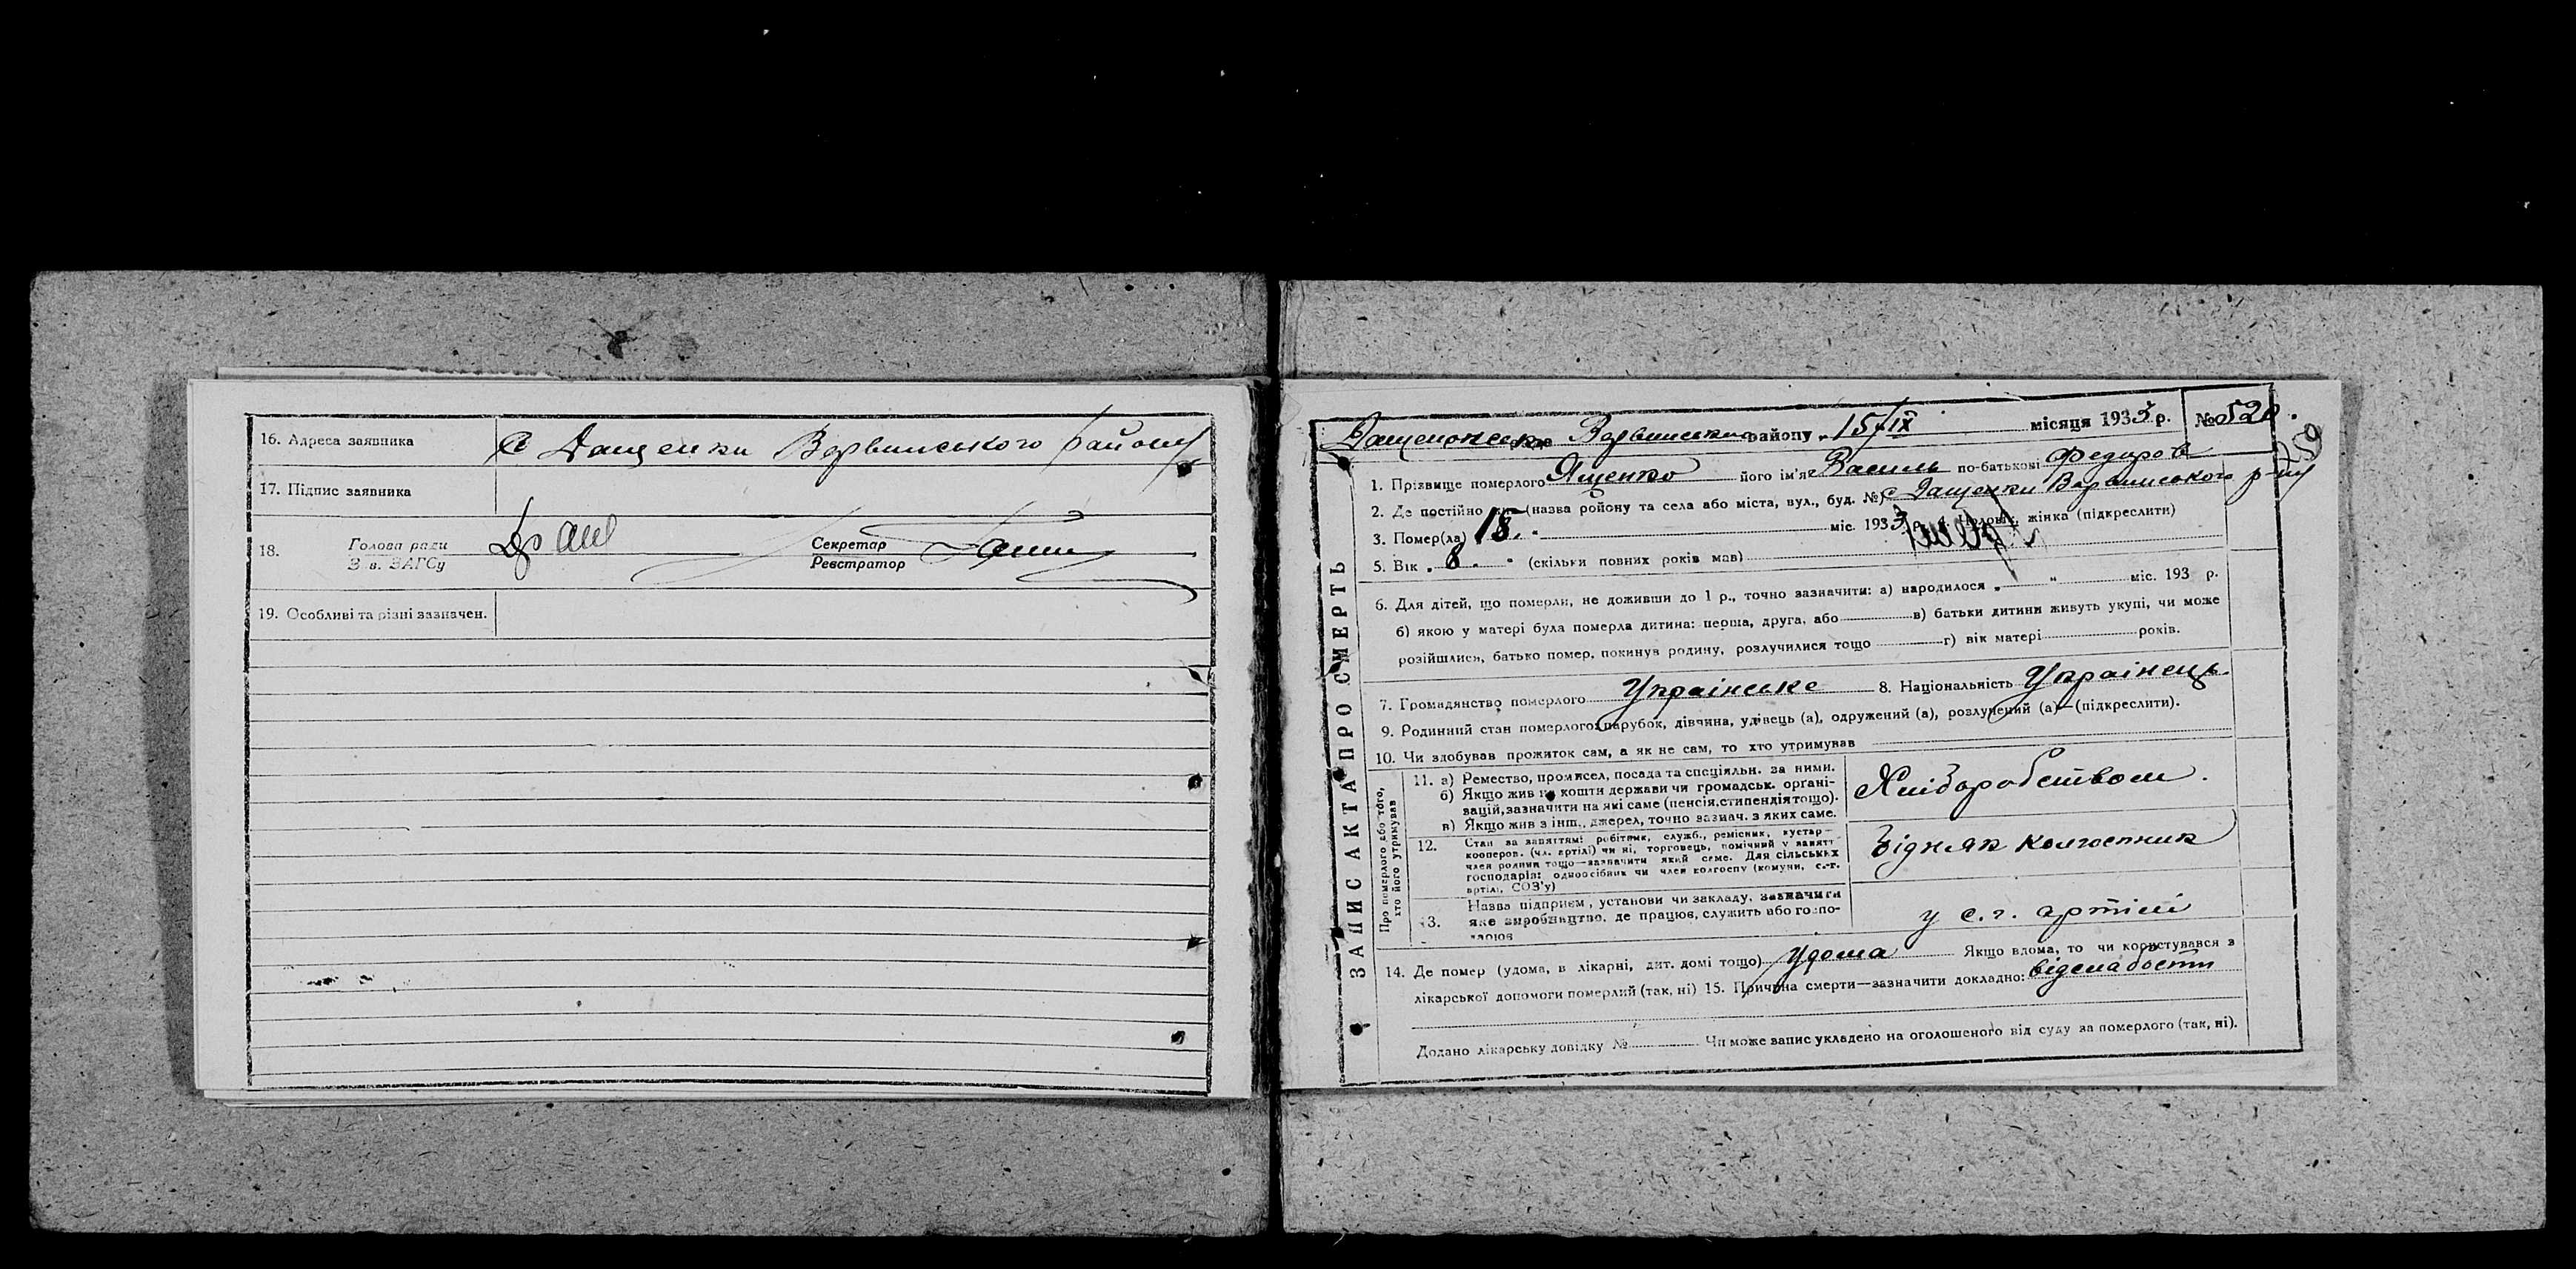 16. Адреса заявника С Дащенки Варвинського району
17. Підпис заявника
18. Голова ради Секретар
Зав. ЗАГСу Реєстратор
19. Особливі та різні зазначен.
ЗАПИС АКТА ПРО СМЕРТЬ
Варвинського району „15/IX місяця 1933 р. № 520.
259
1. Прізвище померлого Ященко його ім'я Василь по-батькові Федоров
2. Де постійно жив (назва району та села або міста, вул., буд. №) с Дащенки Варвинського р-ну
3. Помер(ла) „18. " міс. 1933 р. 4. Чоловік, жінка (підкреслити)
5. Вік „8. " (скільки повних років мав)
6. Для дітей, що померли, не доживши до 1 р., точно зазначити: а) народилося „ " міс. 193 р.
б) якою у матері була померла дитина: перша, друга, або в) батьки дитини живуть укупі, чи може
розійшлися, батько помер, покинув родину, розлучилися тощо г) вік матері років.
7. Громадянство померлого Українське 8. Національність Українець
9. Родинний стан померлого: парубок, дівчина, удівець (а), одружений (а), розлучений (а)—(підкреслити).
10. Чи здобував прожиток сам, а як не сам, то хто утримував
Про померлого або того, хто його утримував
11. а) Ремество, промисел, посада та спеціяльн. за ними.
б) Якщо жив на кошти держави чи громадськ. органі-
зацій, зазначити на які саме (пенсія, стипендія тощо).
в) Якщо жив з інш., джерел, точно зазнач. з яких саме.
Хліборобством.
12. Стан за заняттям: робітник, служб., ремісник, кустар—
кооперов. (чл. артілі) чи ні, торговець, помічний у занятт
член родини тощо—зазначити який саме. Для сільських
господарів: одноосібник чи член колгоспу (комуни, с.-г.
артілі, СОЗ'у)
Бідняк колгоспник
13. Назва підприєм., установи чи закладу, зазначити
яке виробництво, де працює, служить або госпо-
дарює
у с. г. артілі
14. Де помер (удома, в лікарні, дит. домі тощо) удома Якщо вдома, то чи користувався з
лікарської допомоги померлий (так, ні) 15. Причина смерти—зазначити докладно: відслабости
Додано лікарську довідку № Чи може запис укладено на оголошеного від суду за померлого (так, ні).